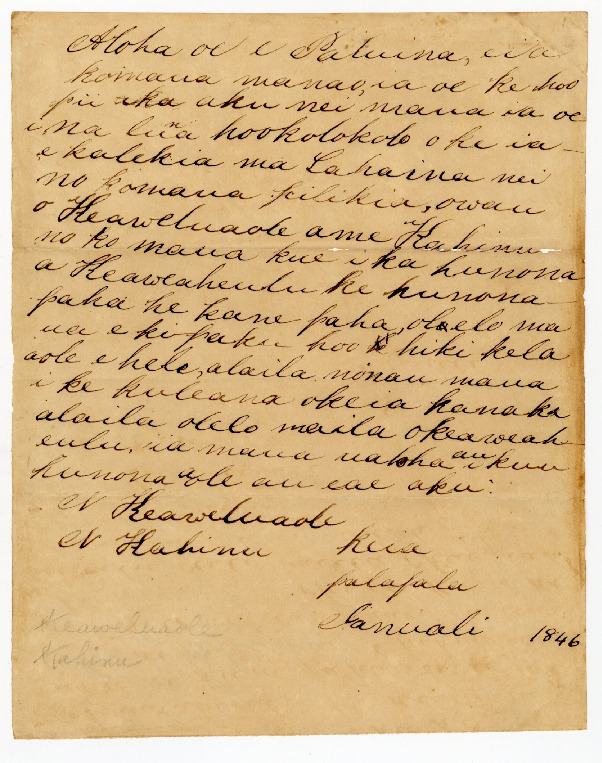 Aloha oe e Paluina, eia
komaua manao, ia oe ke hoo
pii aku nei maua ia oe
i na luna hookolokolo o ke ia-
e kalekia ma Lahaina nei
no komaua pilikia, owau
o Keaweluaole a me Kahinu
no ko maua kue i ka hunona
a Keaweaheulu ke hunona
paha he kane paha, olelo ma
ua e kipaku hoo hiki kela
aole e hele, alaila ninau maua
i ke kuleana okeia kanaka
alaila olelo maila o Keaweah-
eulu, ia maua ua aloha au i kuu
hunona aole au eae aku.
N Keaweluaole
N Kahinu
keia
palapala
Ianuali 1846
Keaweluaole
Kahinu